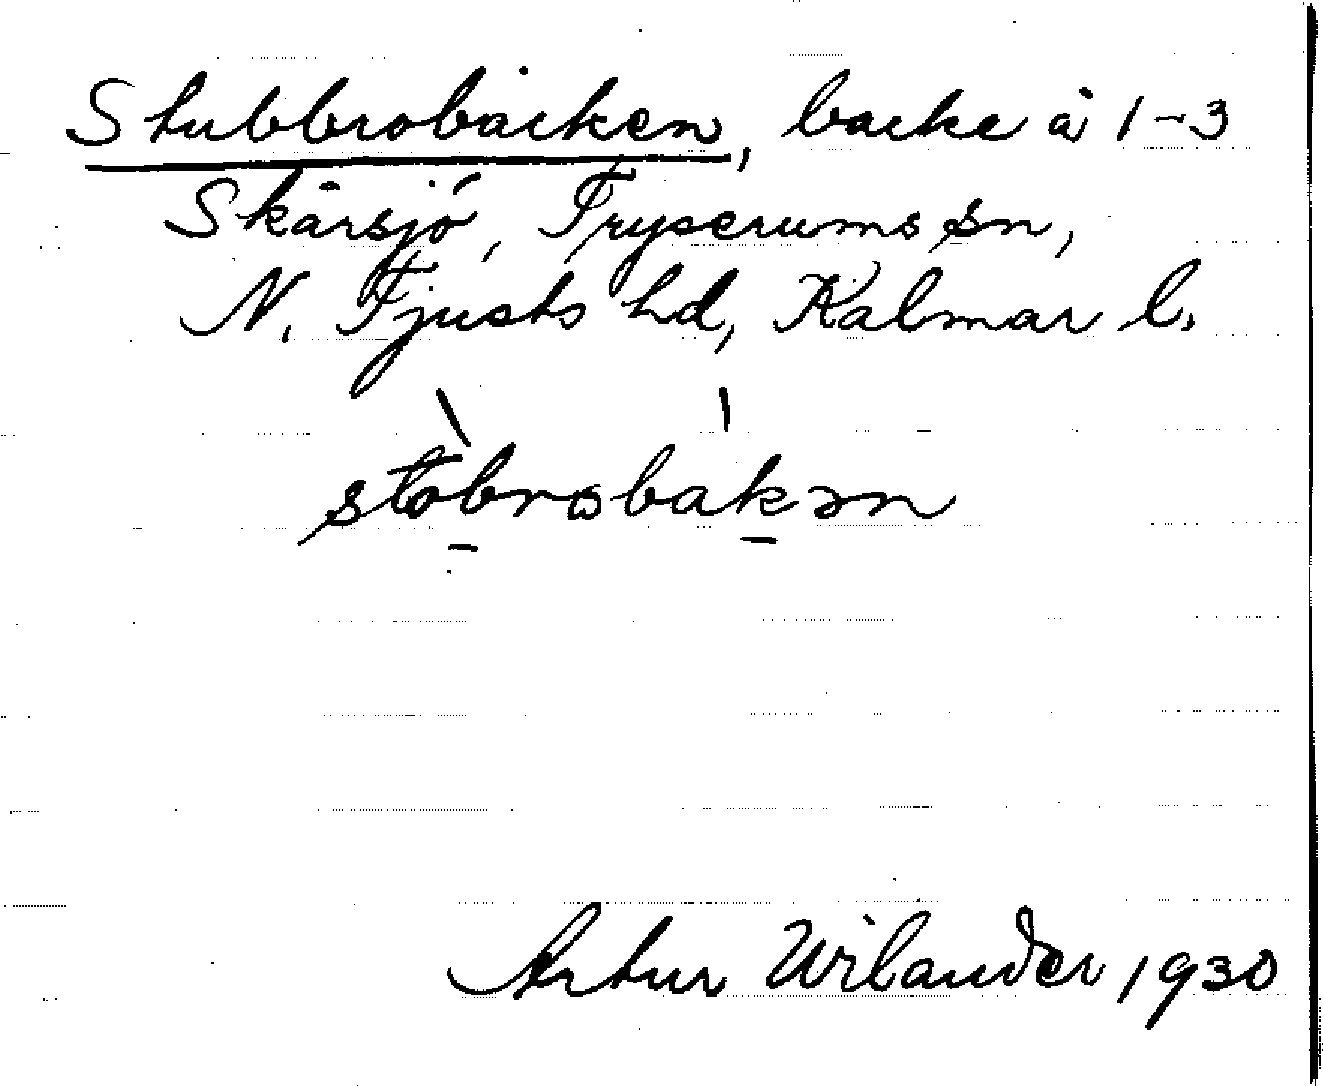 Stubbrobacken, backe å 1-3
Skärsjö, Tryserums sn,
N. Tjusts hd, Kalmar l.
stòbrobákən
Artur Wilander 1930